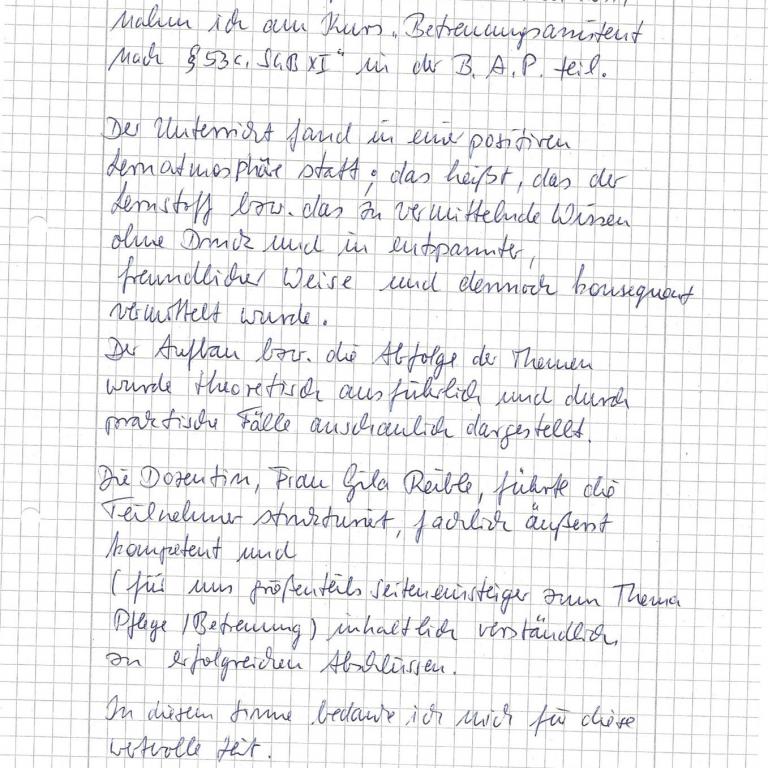 nahm ich am Kurs „Betreuungsassistent
nach § 53c, SGB XI“ in der B. A. P. teil.
Der Unterricht fand in eine positiven
Lernatmosphäre statt; das heißt, das der
Lernstoff bzw. das zu vermittelnde Wissen
ohne Druck und in entspannter,
freundlicher Weise und dennoch konsequent
vermittelt wurde.
Der Aufbau bzw. die Abfolge der Themen
wurde theoretisch ausführlich und durch
praktische Fälle anschaulich dargestellt.
Die Dozentin, Frau Gila Reible, führte die
Teilnehmer strukturiert, fachlich äußerst
kompetent und
(für uns größenteils Seiteneinsteiger zum Thema
Pflege / Betreuung) inhaltlich verständlich,
zu erfolgreichen Abschlüssen.
In diesem Sinne bedanke ich mich für diese
wertvolle Zeit.